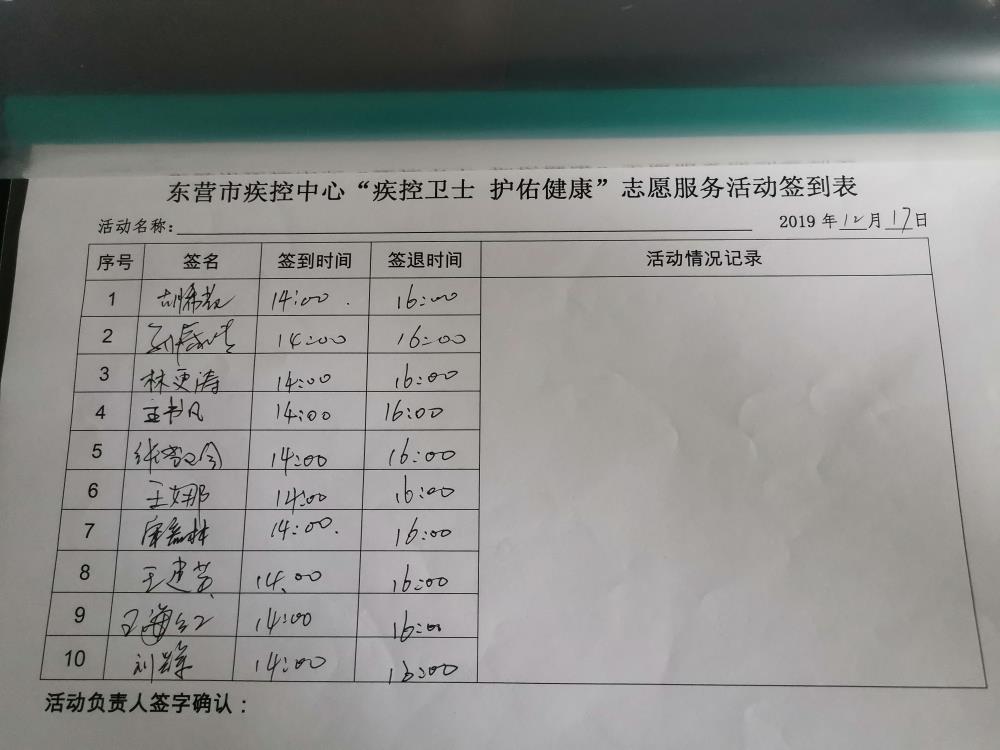 东营市疾控中心“疾控卫士 护佑健康”志愿服务活动签到表
活动名称： 2019 年 12 月 17 日
序号 签名 签到时间 签退时间 活动情况记录
1 14:00 16:00
2 14:00 16:00
3 林更涛 14:00 16:00
4 王书凡 14:00 16:00
5 14:00 16:00
6 王娜 14:00 16:00
7 14:00 16:00
8 王建英 14:00 16:00
9 王海红 14:00 16:00
10 14:00 16:00
活动负责人签字确认：